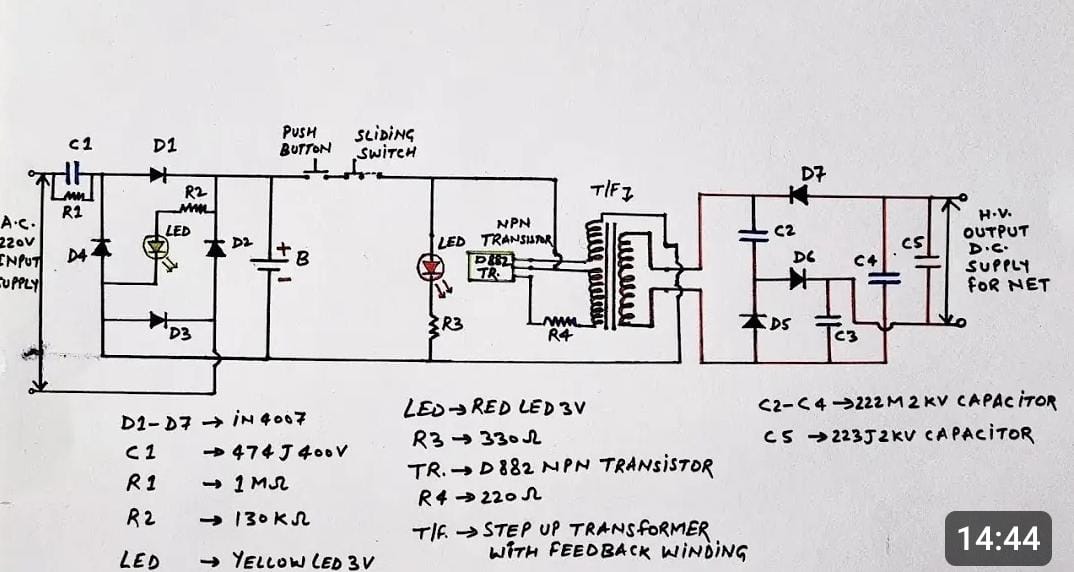 C1
D1
PUSH
BUTTON
SLIDING
SWITCH
R1
R2
LED
D4
D2
A.C.
220V
INPUT
SUPPLY
+
B
-
D3
LED
NPN
TRANSISTOR
D882
TR.
R3
R4
T/F1
D7
C2
D6
C4
C5
D5
C3
H.V.
OUTPUT
D.C.
SUPPLY
FOR NET
D1-D7 → IN 4007
C1 → 474J 400V
R1 → 1MΩ
R2 → 130KΩ
LED → YELLOW LED 3V
LED → RED LED 3V
R3 → 330Ω
TR. → D882 NPN TRANSISTOR
R4 → 220Ω
T/F. → STEP UP TRANSFORMER
WITH FEEDBACK WINDING
C2-C4 → 222M 2KV CAPACITOR
C5 → 223J2KV CAPACITOR
14:44